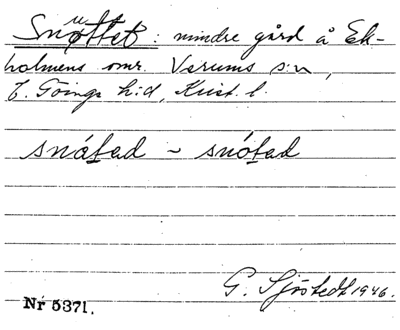 Snuttet: mindre gård å Ek-
holmens omr. Verums s:n,
V. Göinge h:d, Krist. l.
snátad ~ snótad
G. Sjöstedt 1946.
Nr 5371.